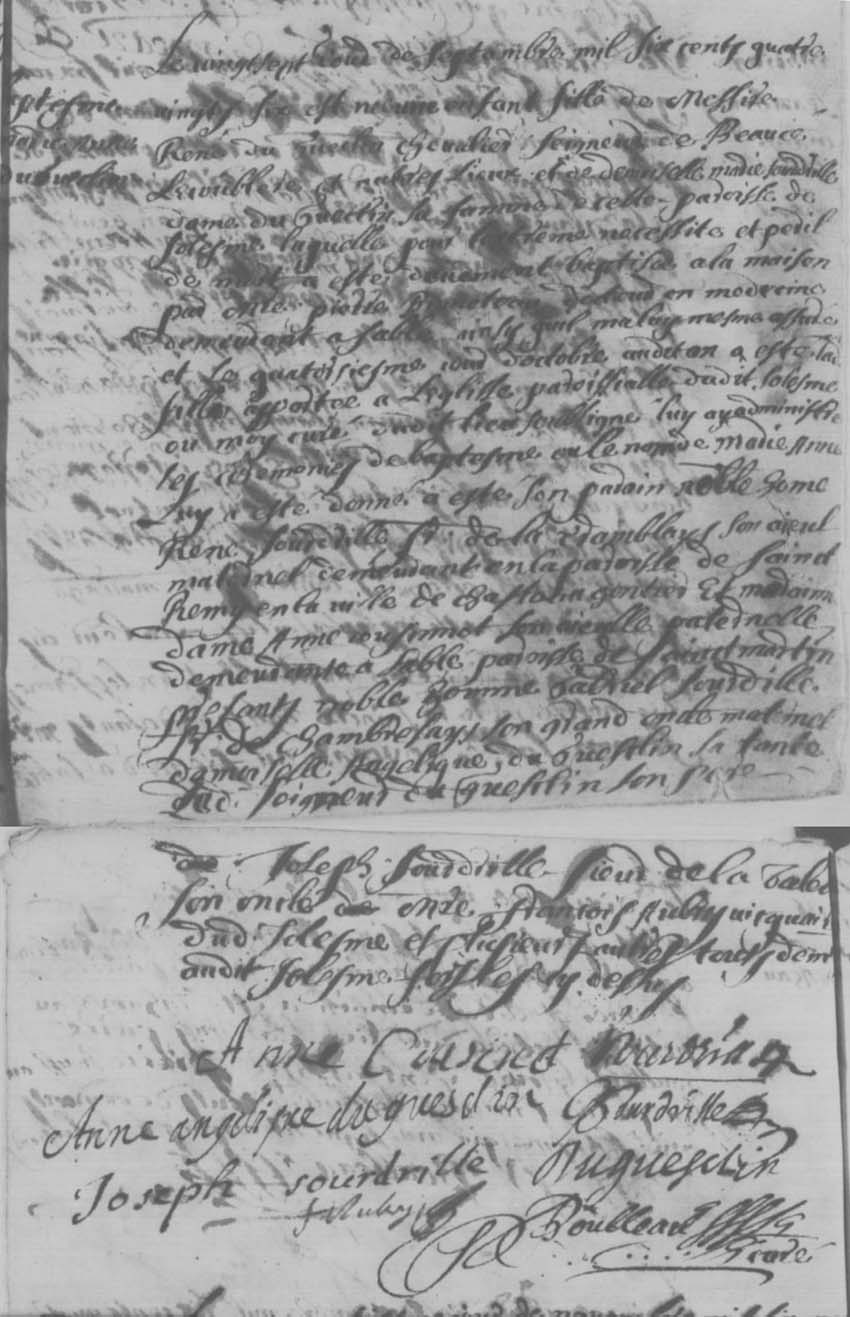 Le vingt sept iour de septambre mil six cents quatre
vingts six est né une enfant fille de Messire
Baptesme
marie anne
du guesclin
René du Guesclin chevalier seigneur de Beaucé
et autres lieux et de demoiselle marie sourdrille
dame du Guesclin sa famme de celle paroisse de
solesme laquelle pour lextreme necessite et peril
de mort a esté deuement baptisée a la maison
par Mre pierre docteur en medecine
demeurant a sablé ainsy quil ma luy mesme assuré
et le quatorsiesme iour doctobre audit an a esté lad
fille apportée a leglisse paroissialle dudit solesme
ou moy curé dudit lieu soubsigné luy ay administré
les ceremonies de baptesme ou le nom de marie Anne
luy a esté donné a esté son parain noble home
René sourdrille sr de la son aieul
maternel demeurant en la paroisse de sainct
Remy en la ville de chasteaugontier Et madame
dame Anne son aieulle paternelle
demeurante a sablé paroisse de sainct martin
presants noble homme Gabriel sourdrille
sr de chambresays son grand oncle maternel
damoiselle Angelique du Guesclin sa tante
dud. seigneur du Guesclin son pere
de Joseph sourdrille sieur de la
son oncle de Mre François Aubry
dud. solesme et plusieurs autres touts dem
audit solesme fors les cy dessus
Anne Sourdrille
Anne angelique du guesclin Sourdrille
Joseph sourdrille Duguesclin
f Aubry
curé